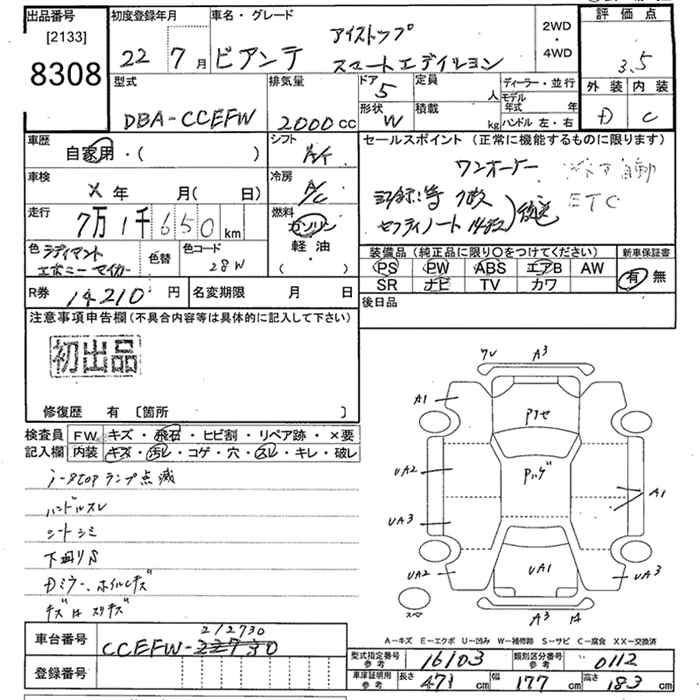 出品番号
[2133]
8308
初度登録年月
22 7月
車名・グレード
ビアンテ
アイストップ
スマートエディション
2WD
・
4WD
評価点
3.5
外装 内装
D C
型式
DBA-CCEFW
排気量
2000cc
ドア
5
定員
人
ディーラー・並行
モデル年式 年
形状
W
積載
kg
ハンドル 左・右
車歴
自家用・( )
シフト
車検
メ 年 月( 日)
冷房
A/C
走行
7万1千650km
燃料
ガソリン
軽油
( )
色
ラディアント
エボニーマイカ
色替
色コード
28W
R券 14210円
名変期限 月 日
セールスポイント (正常に機能するものに限ります)
ワンオーナー
ETC
装備品 (純正品に限り○をつけてください)
新車保証書
PS PW ABS エアB AW
SR ナビ TV カワ
有 無
後日品
注意事項申告欄(不具合内容等は具体的に記入して下さい)
初出品
修復歴 有 〔箇所 〕
検査員記入欄
FW キズ・飛石・ヒビ割・リペア跡・×要
内装 キズ・汚レ・コゲ・穴・スレ・キレ・破レ
i-stopランプ点滅
ハンドルスレ
シートシミ
下廻りS
A3
A1
Pワセ
Pハゲ
UA2
UA3
A1
UA2
UA1
UA3
A3
スペ
A-キズ E-エクボ U-凹み W-補修跡 S-サビ C-腐食 XX-交換済
車台番号
212730
CCEFW-
登録番号
型式指定番号 参考 16103
類別区分番号 参考 0112
車庫証明用 参考
長さ 471cm
幅 177cm
高さ 183cm